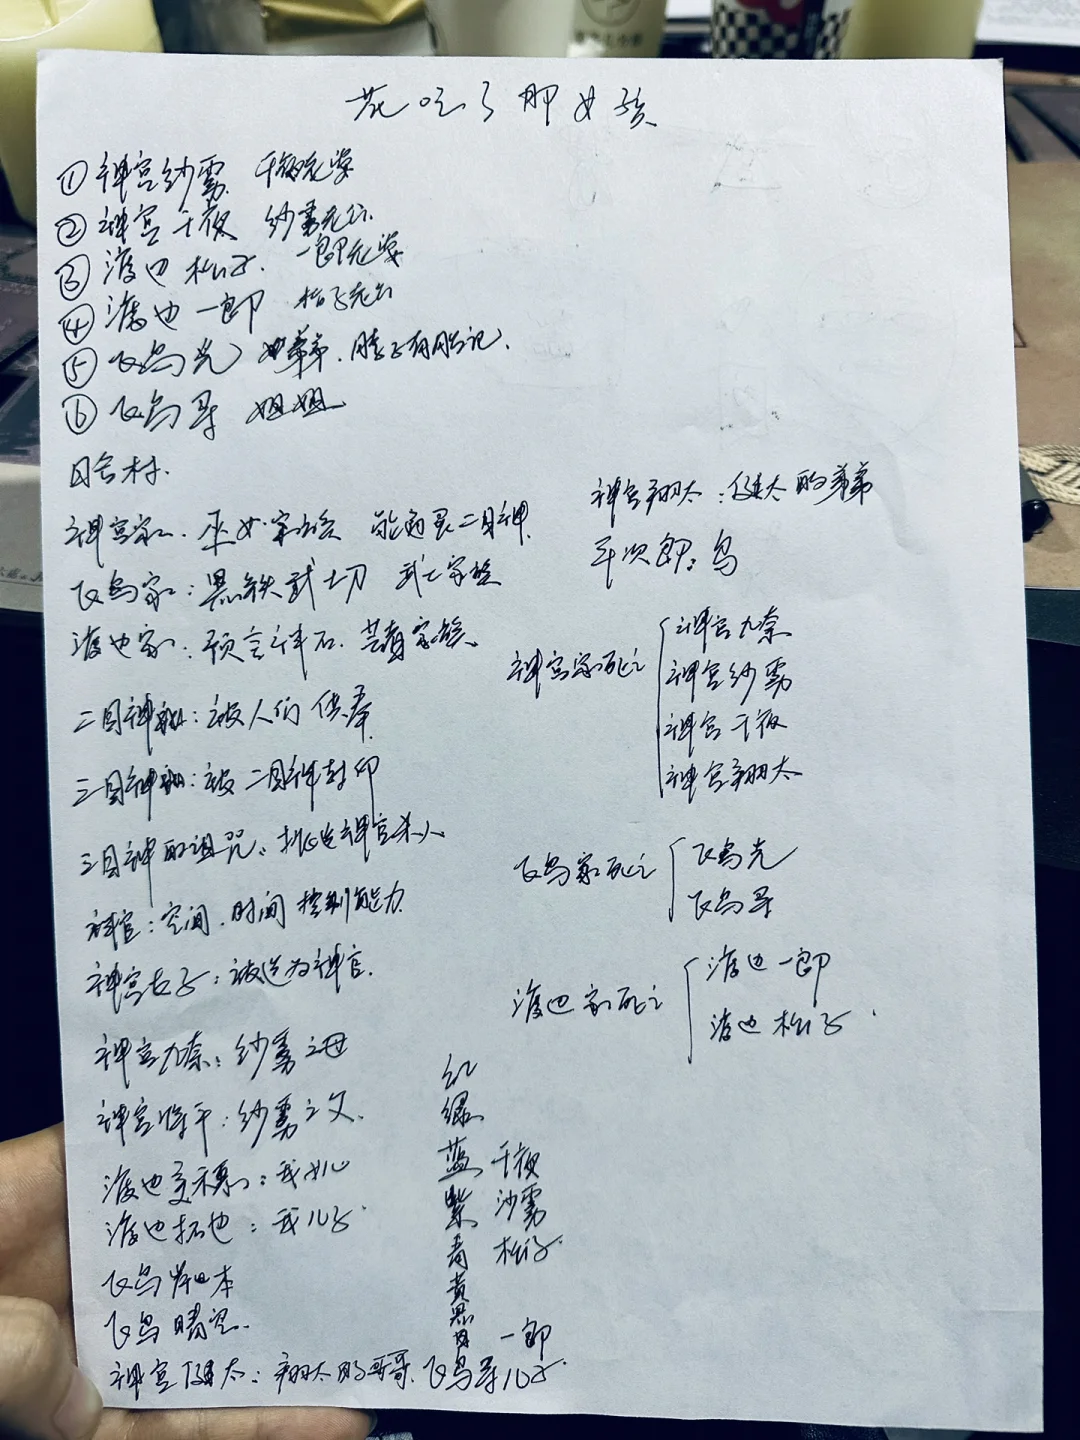 花吃了那女孩
① 神宫纱雾 千夜老婆
② 神宫千夜 纱雾老公
③ 渡边松子. 一郎老婆
④ 渡边一郎 松子老公
⑤ 飞鸟光 弟弟. 脖子有胎记.
⑥ 飞鸟寻 姐姐
目舍村.
神宫家: 巫女家族 能通灵二目神.
飞鸟家: 黑铁武士刀 武士家族
渡边家: 预言神石. 家族.
二目神: 被人们供奉.
三目神: 被二目神封印
三目神的诅咒: 挑选神官杀人
神官: 空间. 时间控制能力.
神宫女子: 被选为神官.
神宫九奈: 纱雾之母
神宫将平: 纱雾之父.
渡边美穗: 我女儿
渡边拓也: 我儿子.
飞鸟本
飞鸟晴空.
神宫健太: 翔太的哥哥. 飞鸟寻儿子.
神宫翔太: 健太的弟弟
平次郎: 鸟
神宫家死亡
神宫九奈
神宫纱雾
神宫千夜
神宫翔太
飞鸟家死亡
飞鸟光
飞鸟寻
渡边家死亡
渡边一郎
渡边松子.
红
绿
蓝 千夜
紫 沙雾
青 松子.
黄
黑
白 一郎